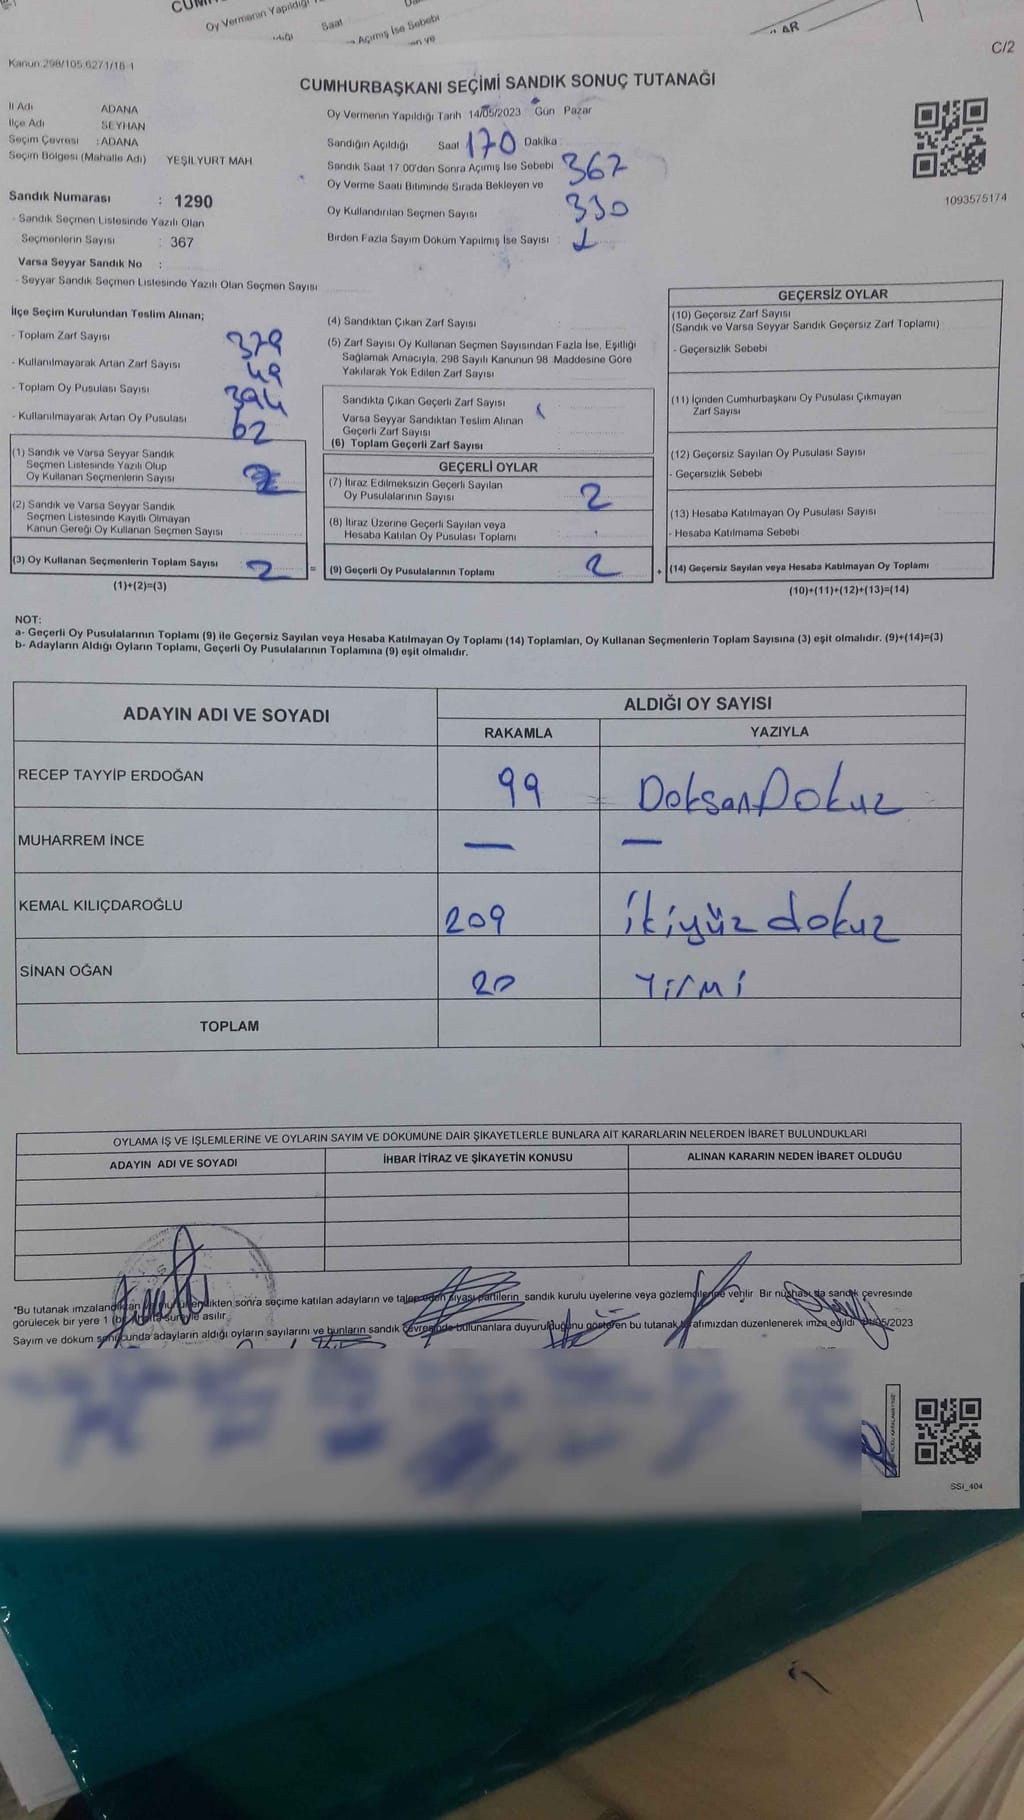 Oy Vermenin Yapıldığı
Saat
Açımış İse Sebebi
C/2
Kanun:298/105,6271/18-1
CUMHURBAŞKANI SEÇİMİ SANDIK SONUÇ TUTANAĞI
İl Adı ADANA
İlçe Adı SEYHAN
Seçim Çevresi : ADANA
Seçim Bölgesi (Mahalle Adı) YEŞİLYURT MAH
Sandık Numarası : 1290
- Sandık Seçmen Listesinde Yazılı Olan
Seçmenlerin Sayısı : 367
Varsa Seyyar Sandık No :
- Seyyar Sandık Seçmen Listesinde Yazılı Olan Seçmen Sayısı
Oy Vermenin Yapıldığı Tarih 14/05/2023 Gün Pazar
Sandığın Açıldığı Saat 170 Dakika
Sandık Saat 17 00'den Sonra Açımış İse Sebebi 367
Oy Verme Saati Bitiminde Sırada Bekleyen ve
Oy Kullandırılan Seçmen Sayısı 330
Birden Fazla Sayım Döküm Yapılmış İse Sayısı : 1
1093575174
İlçe Seçim Kurulundan Teslim Alınan;
- Toplam Zarf Sayısı 379
- Kullanılmayarak Artan Zarf Sayısı 49
- Toplam Oy Pusulası Sayısı 394
- Kullanılmayarak Artan Oy Pusulası 62
(1) Sandık ve Varsa Seyyar Sandık
Seçmen Listesinde Yazılı Olup
Oy Kullanan Seçmenlerin Sayısı 2
(2) Sandık ve Varsa Seyyar Sandık
Seçmen Listesinde Kayıtlı Olmayan
Kanun Gereği Oy Kullanan Seçmen Sayısı
(3) Oy Kullanan Seçmenlerin Toplam Sayısı 2 =
(1)+(2)=(3)
(4) Sandıktan Çıkan Zarf Sayısı
(5) Zarf Sayısı Oy Kullanan Seçmen Sayısından Fazla İse, Eşitliği
Sağlamak Amacıyla, 298 Sayılı Kanunun 98. Maddesine Göre
Yakılarak Yok Edilen Zarf Sayısı
Sandıkta Çıkan Geçerli Zarf Sayısı
Varsa Seyyar Sandıktan Teslim Alınan
Geçerli Zarf Sayısı
(6) Toplam Geçerli Zarf Sayısı
GEÇERLİ OYLAR
(7) İtiraz Edilmeksizin Geçerli Sayılan
Oy Pusulalarının Sayısı 2
(8) İtiraz Üzerine Geçerli Sayılan veya
Hesaba Katılan Oy Pusulası Toplamı
(9) Geçerli Oy Pusulalarının Toplamı 2 +
GEÇERSİZ OYLAR
(10) Geçersiz Zarf Sayısı
(Sandık ve Varsa Seyyar Sandık Geçersiz Zarf Toplamı)
- Geçersizlik Sebebi
(11) İçinden Cumhurbaşkanı Oy Pusulası Çıkmayan
Zarf Sayısı
(12) Geçersiz Sayılan Oy Pusulası Sayısı
- Geçersizlik Sebebi
(13) Hesaba Katılmayan Oy Pusulası Sayısı
- Hesaba Katılmama Sebebi
(14) Geçersiz Sayılan veya Hesaba Katılmayan Oy Toplamı
(10)+(11)+(12)+(13)=(14)
NOT:
a- Geçerli Oy Pusulalarının Toplamı (9) ile Geçersiz Sayılan veya Hesaba Katılmayan Oy Toplamı (14) Toplamları, Oy Kullanan Seçmenlerin Toplam Sayısına (3) eşit olmalıdır. (9)+(14)=(3)
b- Adayların Aldığı Oyların Toplamı, Geçerli Oy Pusulalarının Toplamına (9) eşit olmalıdır.
ADAYIN ADI VE SOYADI
ALDIĞI OY SAYISI
RAKAMLA YAZIYLA
RECEP TAYYİP ERDOĞAN 99 DoksanDokuz
MUHARREM İNCE — —
KEMAL KILIÇDAROĞLU 209 ikiyüz dokuz
SİNAN OĞAN 20 Yirmi
TOPLAM
OYLAMA İŞ VE İŞLEMLERİNE VE OYLARIN SAYIM VE DÖKÜMÜNE DAİR ŞİKAYETLERLE BUNLARA AİT KARARLARIN NELERDEN İBARET BULUNDUKLARI
ADAYIN ADI VE SOYADI İHBAR İTİRAZ VE ŞİKAYETİN KONUSU ALINAN KARARIN NEDEN İBARET OLDUĞU
"Bu tutanak sonra seçime katılan adayların ve siyasi partilerin sandık kurulu üyelerine veya verilir. Bir nüshası da sandık çevresinde
görülecek bir yere 1 asılır.
Sayım ve döküm sonucunda adayların aldığı oyların sayılarını ve bunların sandık bulunanlara duyurulduğunu gösteren bu tutanak tarafımızdan düzenlenerek imza edildi
SSİ_404